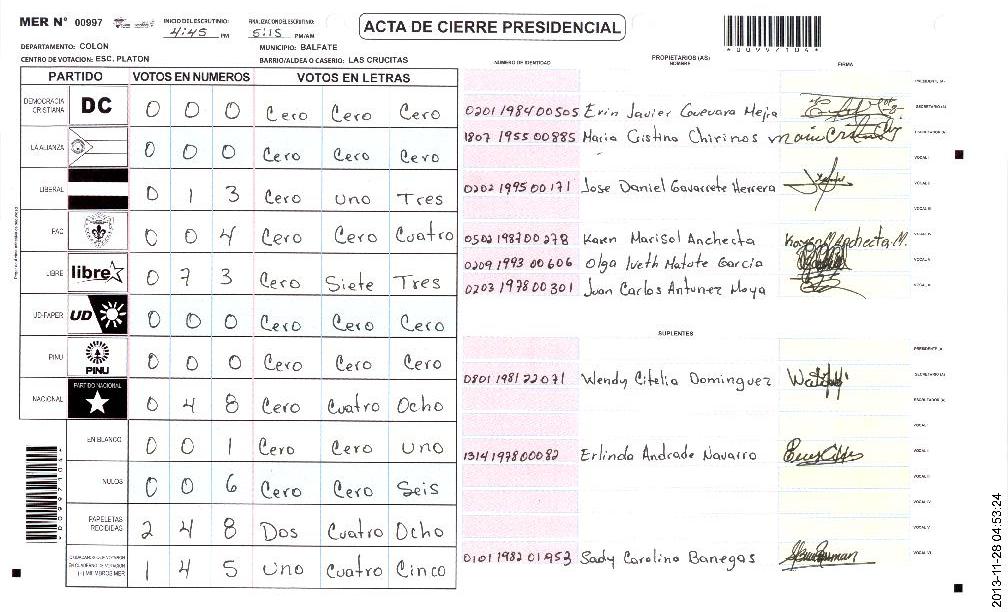 MER N° 00997
INICIO DEL ESCRUTINIO: 4:45 PM
FINALIZACION DEL ESCRUTINIO: 5:15 PM/AM
ACTA DE CIERRE PRESIDENCIAL
*00997104*
DEPARTAMENTO: COLON
MUNICIPIO: BALFATE
CENTRO DE VOTACION: ESC. PLATON
BARRIO/ALDEA O CASERIO: LAS CRUCITAS
PARTIDO VOTOS EN NUMEROS VOTOS EN LETRAS
DEMOCRACIA CRISTIANA DC 0 0 0 Cero Cero Cero
LA ALIANZA 0 0 0 Cero Cero Cero
LIBERAL 0 1 3 Cero uno Tres
PAC 0 0 4 Cero Cero Cuatro
LIBRE libre 0 7 3 Cero Siete Tres
UD-FAPER UD 0 0 0 Cero Cero Cero
PINU PINU 0 0 0 Cero Cero Cero
NACIONAL PARTIDO NACIONAL 0 4 8 Cero Cuatro Ocho
EN BLANCO 0 0 1 Cero Cero uno
NULOS 0 0 6 Cero Cero Seis
PAPELETAS RECIBIDAS 2 4 8 Dos Cuatro Ocho
CIUDADANOS QUE VOTARON EN CUADERNO DE VOTACION (+) MIEMBROS MER 1 4 5 uno Cuatro Cinco
NUMERO DE IDENTIDAD
PROPIETARIOS (AS)
NOMBRE
FIRMA
PRESIDENTE (A)
0201 1984 00505 Erin Javier Guevara Mejia SECRETARIO (A)
1807 1955 00885 Maria Cristina Chirinos ESCRUTADOR (A)
VOCAL I
0202 1995 00171 Jose Daniel Gavarrete Herrera VOCAL II
VOCAL III
0502 1987 00278 Karen Marisol Ancheeta VOCAL IV
0209 1993 00606 Olga Iveth Matute Garcia VOCAL V
0203 1978 00301 Juan Carlos Antunez Moya VOCAL VI
SUPLENTES
PRESIDENTE (A)
0801 1981 22071 Wendy Citelia Dominguez SECRETARIO (A)
ESCRUTADOR (A)
VOCAL I
1314 1978 00082 Erlinda Andrade Navarro VOCAL II
VOCAL III
VOCAL IV
VOCAL V
0101 1982 01953 Sady Carolina Banegas VOCAL VI
2013-11-28 04:53:24